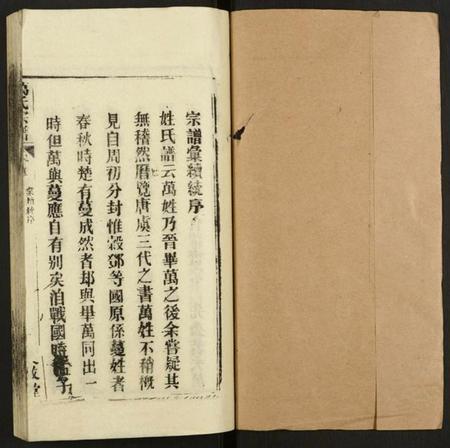 宗譜彙續統序
姓氏譜云萬姓乃晉畢萬之後余嘗疑其
無稽然曆覽唐虞三代之書萬姓不稍槪
見自周初分封惟穀鄧等國原係蔓姓者
春秋時楚有蔓成然者却與畢萬同出一
時但萬與蔓應自有别矣洎戰國時
萬氏宗譜